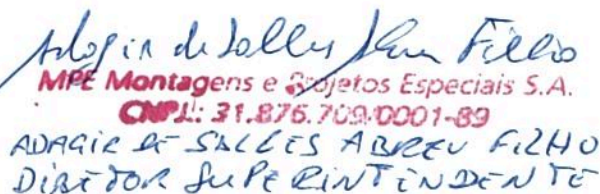 Adagir de Salles Abreu Filho
MPE Montagens e Projetos Especiais S.A.
CNPJ: 31.876.709/0001-89
ADAGIR DE SALLES ABREU FILHO
DIRETOR SUPERINTENDENTE